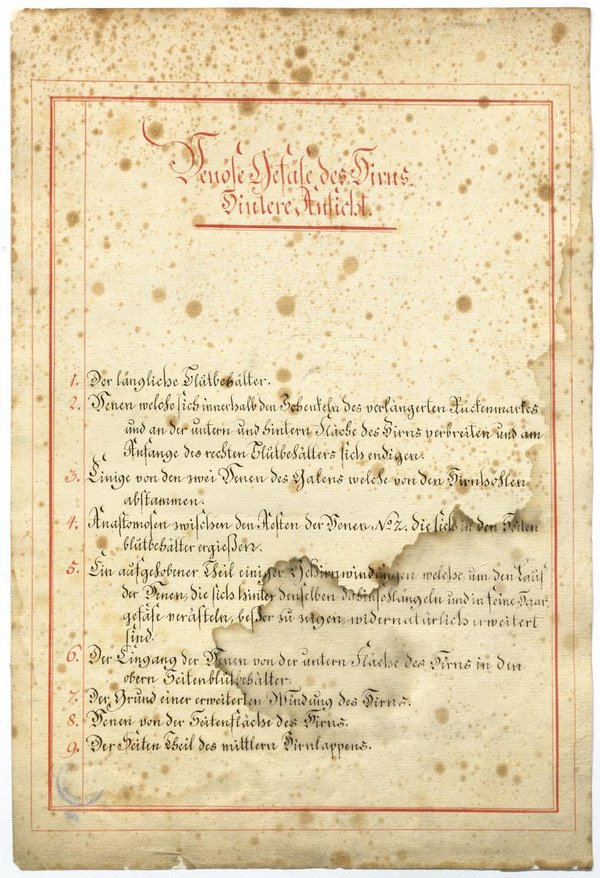 Venöse Gefäße des Hirns.
Hintere Ansicht.
1. Der längliche Blutbehälter.
2. Venen welche sich innerhalb den Schenkeln des verlängerten Rückenmarkes
und an der untern und hintern Fläche des Hirns verbreiten und am
Anfange des rechten Blutbehälters sich endigen.
3. Einige von den zwei Venen des Galens welche von den Hirnhöhlen
abstammen.
4. Anastomosen zwischen den Aesten der Venen No 2. die sich in den Seiten
blutbehälter ergießen.
5. Ein aufgehobener Theil einiger Gehirnwindungen welche, um den Lauf
der Venen, die sich hinter denselben dahinschlängeln und in feine Haar
gefäße verästeln, besser zu zeigen, widernatürlich erweitert
sind.
6. Der Eingang der Venen von der untern Fläche des Hirns in den
obern Seitenblutbehälter.
7. Der Grund einer erweiterten Windung des Hirns.
8. Venen von der Seitenfläche des Hirns.
9. Der Seiten Theil des mittlern Hirnlappens.